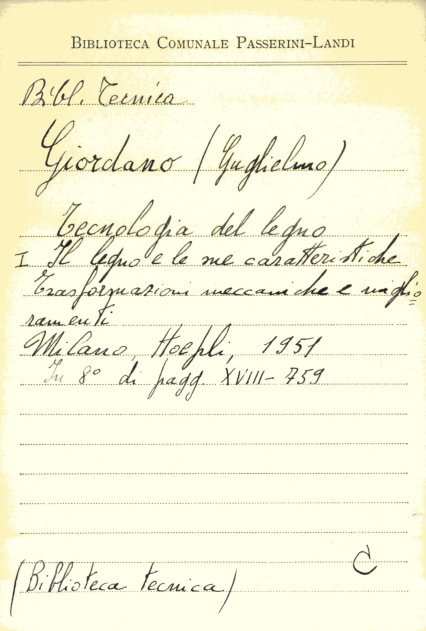 BIBLIOTECA COMUNALE PASSERINI-LANDI
Bibl. Tecnica
Giordano (Guglielmo)
Tecnologia del legno
I Il legno e le sue caratteristiche
Trasformazioni meccaniche e miglio=
ramenti
Milano, Hoepli, 1951
In 8° di pagg. XVIII-759
C
(Biblioteca tecnica)